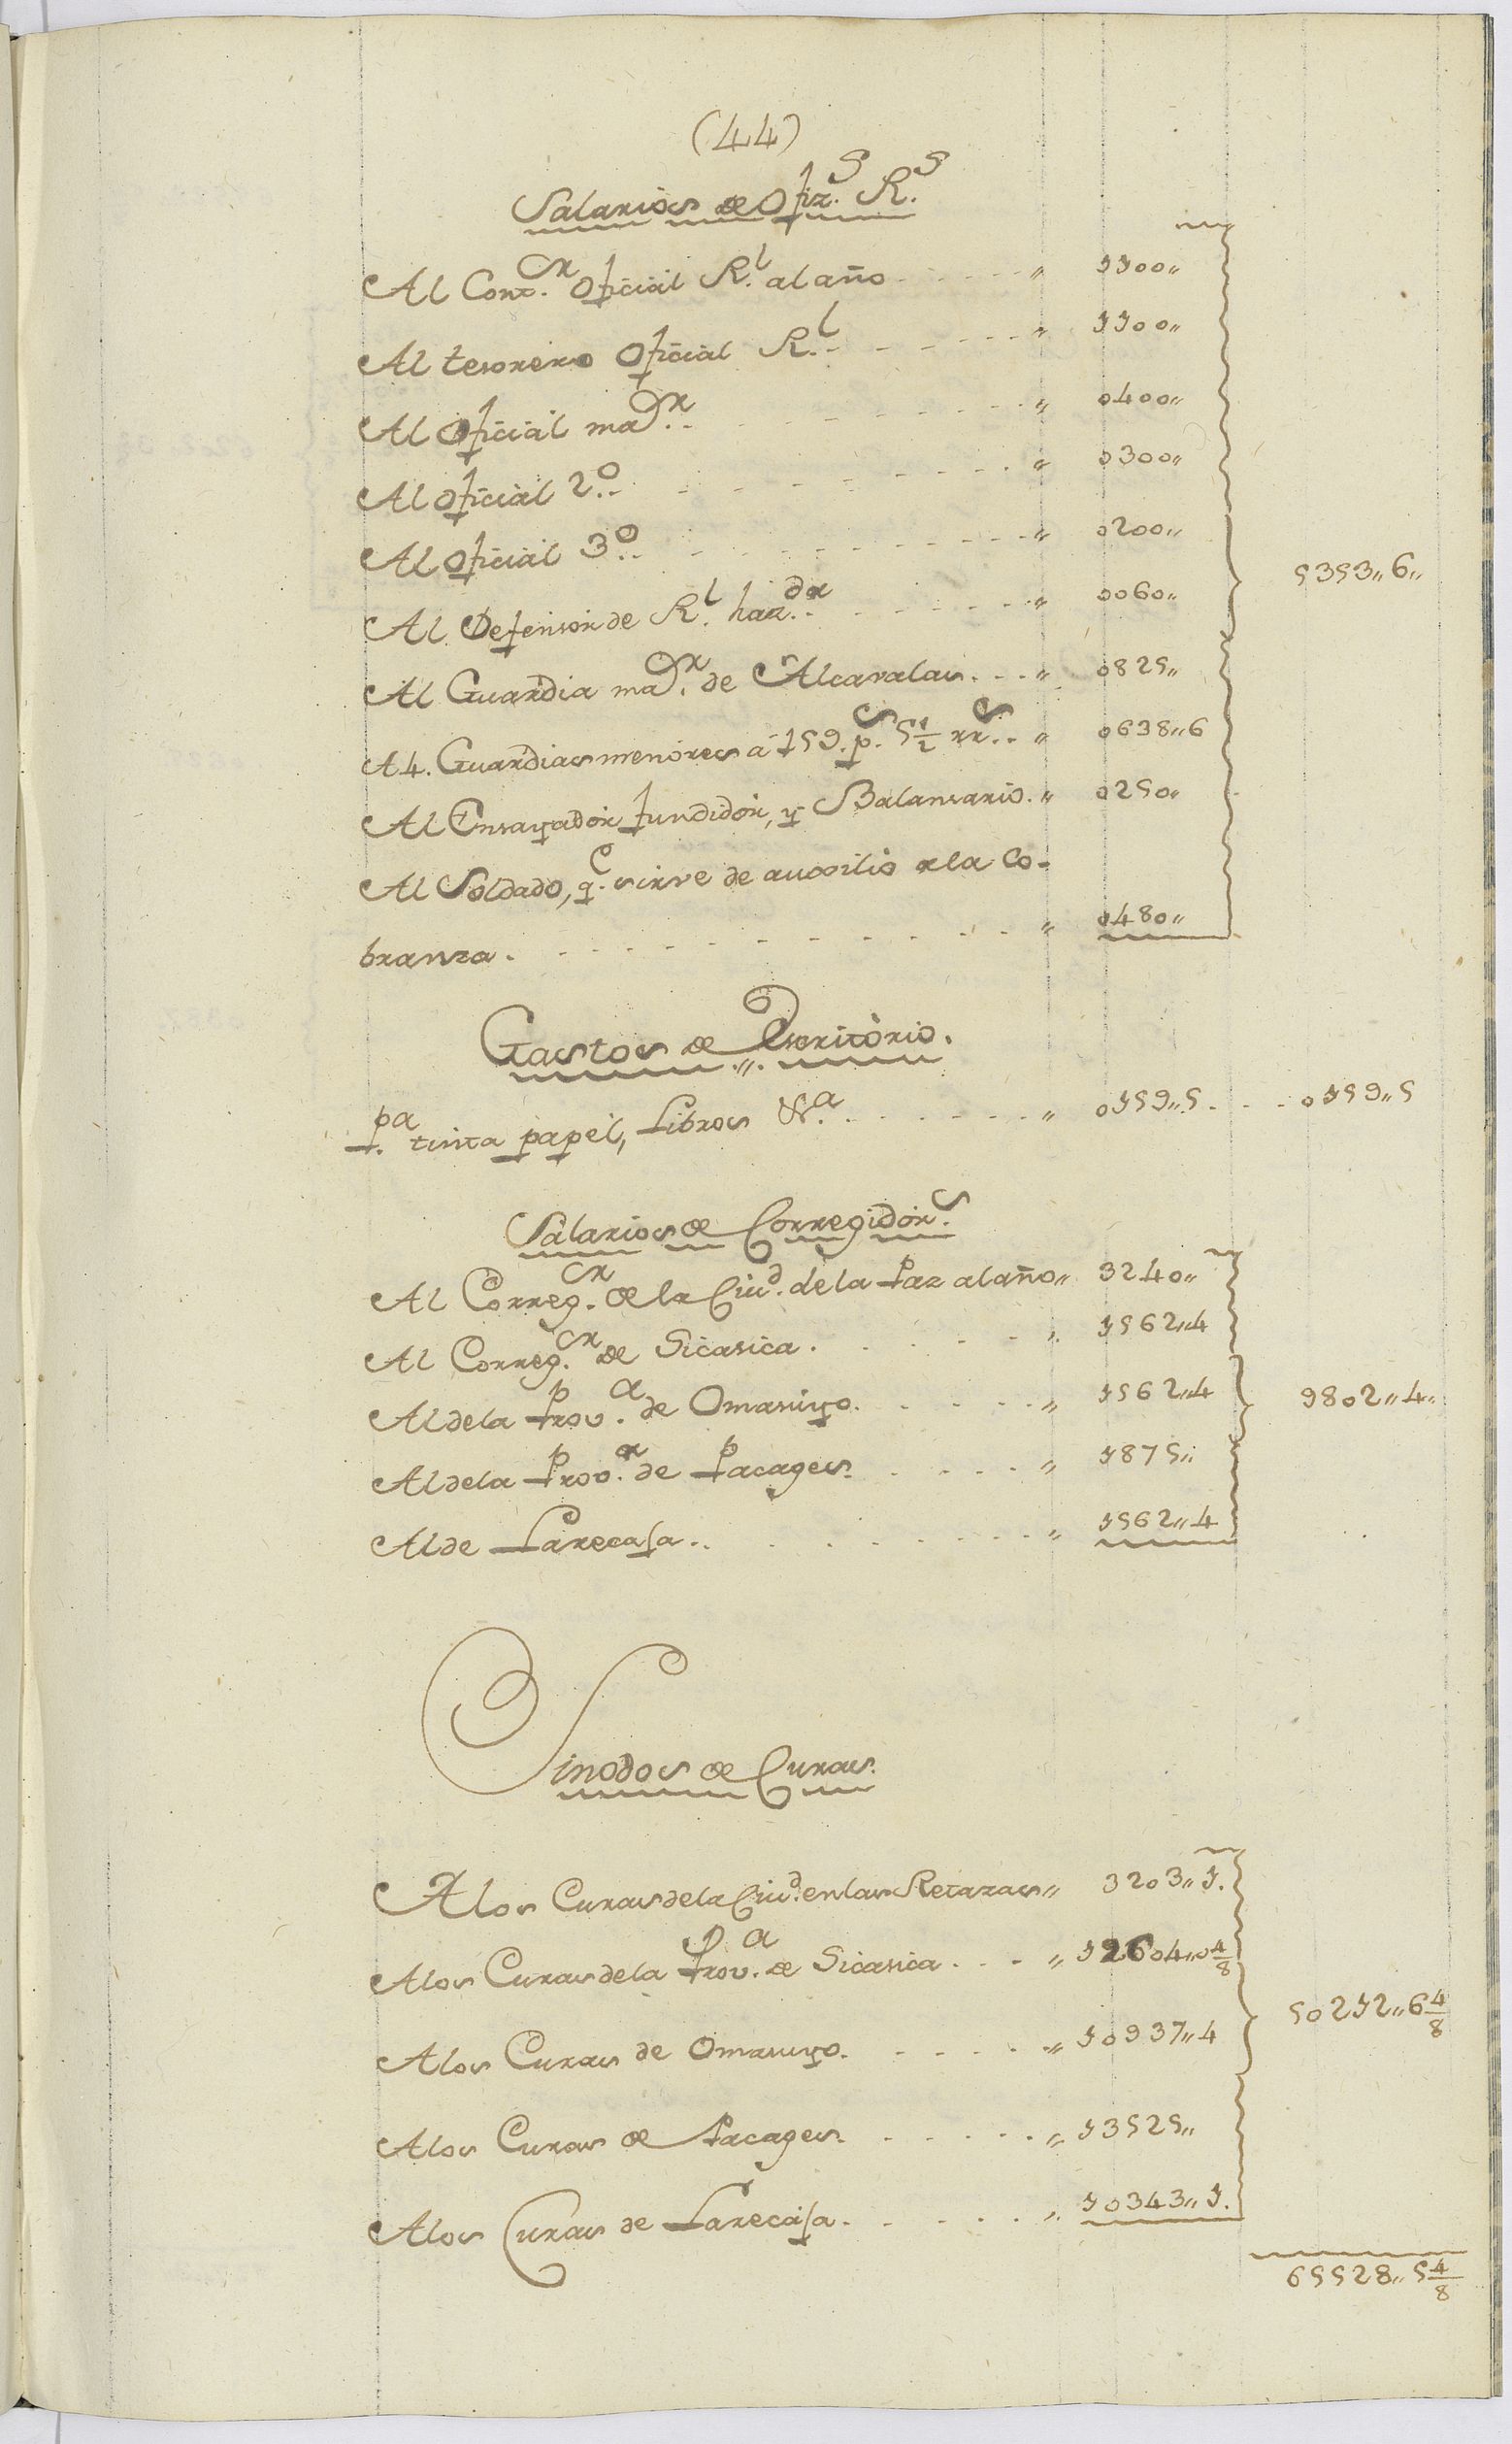 (44)
Salarios de Ofiz.s R.s
Al Cont.or Oficial R.l al año " 1100"
Al tesorero Oficial R.l " 1100"
Al Oficial ma.or " 0400"
Al Oficial 2.o " 0300"
Al Oficial 3.o " 0200"
Al Defensor de R.l haz.da " 0060"
Al Guardia ma.or de Alcavalas " 0825"
A 4. Guardias menores a 159. p.s 5 1/2 rr.s " 0638"6
Al Ensayador fundidor, y Balansario " 0250"
Al Soldado, q.e sirve de auxilio a la Co-
branza " 0480"
5353"6"
Gastos de Escritorio.
P.a tinta papel, Libros &.a " 0159"5 0159"5
Salarios de Corregidor.s
Al Correg.or de la Ciu.d de la Paz al año" 3240"
Al Correg.or de Sicasica. " 1562"4
Al de la Prov.a de Omasuyo. " 1562"4 9802"4"
Al de la Prov.a de Pacages. " 1875"
Al de Larecaja " 1562"4
Sinodos de Curas.
A los Curas de la Ciu.d en las Retazas" 3203"1.
A los Curas de la Prov.a de Sicasica " 12604"0 4/8
A los Curas de Omasuyo. " 10937"4 50212"6 4/8
A los Curas de Pacages. " 13525"
A los Curas de Larecaja " 10343"1.
65528"5 4/8